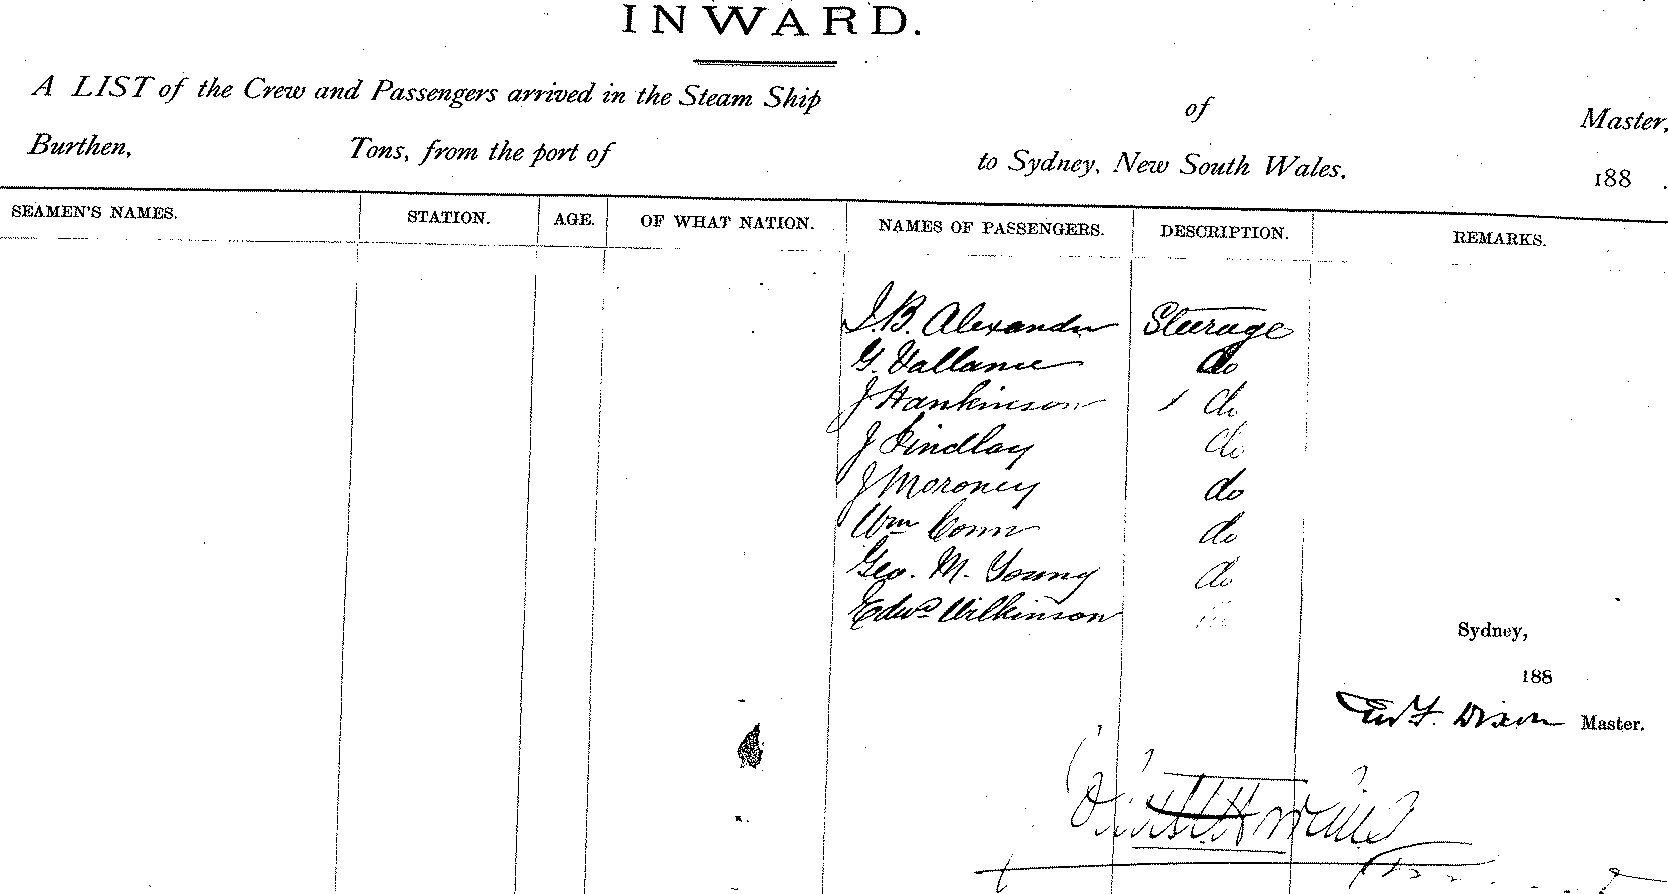 INWARD.
A LIST of the Crew and Passengers arrived in the Steam Ship of Master,
Burthen, Tons, from the port of to Sydney, New South Wales. 188 .
SEAMEN'S NAMES. STATION. AGE. OF WHAT NATION. NAMES OF PASSENGERS. DESCRIPTION. REMARKS.
J.B. Alexander Steerage
G. Vallance do
J Hankinson do
J Findlay do
J Moroney do
Wm Conn do
Geo. M. Young do
Edwd Wilkinson
Sydney,
188
Dixon Master.